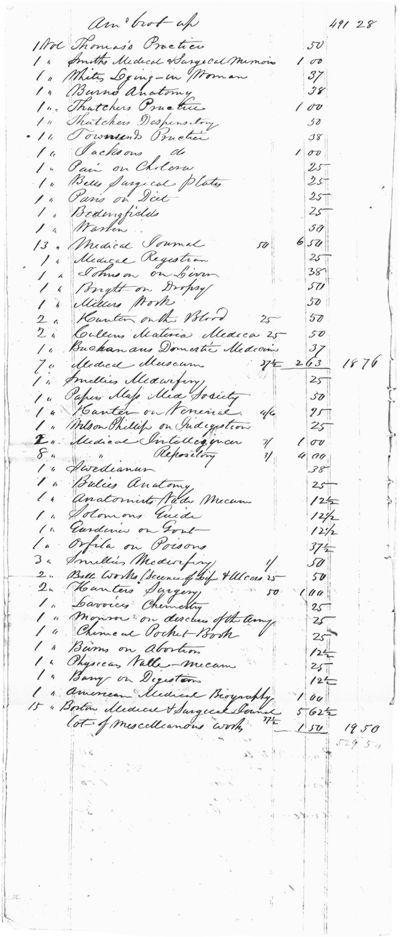 Amt brot up 491 28
1 Vol Thomas's Practice 50
1 " Smiths Medical & Surgical Memoirs 1 00
1 " Whites Lying-in Woman 37
1 " Burns Anatomy 38
1 " Thatchers Practice 1 00
1 " Thatchers Dispensitory 50
1 " Townsends Practice 38
1 " Jacksons do 1 00
1 " on Cholera 25
1 " Bells Surgical Plates 25
1 " Paris on Diet 25
1 " Bedingfields 25
1 " 50
13 " Medical Journal 50 6 50
1 " Medical Register 25
1 " Johnson on Liver 38
1 " Bright on Dropsy 50
1 " Millers Work 50
2 " Hunter on the Blood 25 50
2 " Cullens Materia Medica 25 50
1 " Buchanans Domestic Medicine 37
7 " Medical Museum 37½ 2 63 18 76
1 " Smellies Midwifery 25
1 " Papers Mass Med Society 50
1 " Hunter on Venereal 95
1 " Wilson Phillip on Indigestion 25
2 " Medical Intelligencer 1 00
8 " " Repository 4 00
1 " Swedianum 38
1 " Balies Anatomy 25
1 " Anatomists Vade Mecum 12½
1 " Solomons Guide 12½
1 " Gardiner on Gout 12½
1 " Orfila on Poisons 37½
3 " Smellies Midwifery 50
2 " Bell Works & Ulcers 25 50
2 " Hunters Surgery 50 1 00
1 " Chemistry 25
1 " Monroe on diseases of the Army 25
1 " Chemical Pocket Book 25
1 " Burns on Abortion 12½
1 " Physicians Valle-mecum 25
1 " Barry on Digestion 12½
1 " American Medical Biography 1 00
15 " Boston Medical & Surgical Journal 37½ 5 62½
lot of Miscellianous works 1 50 19 50